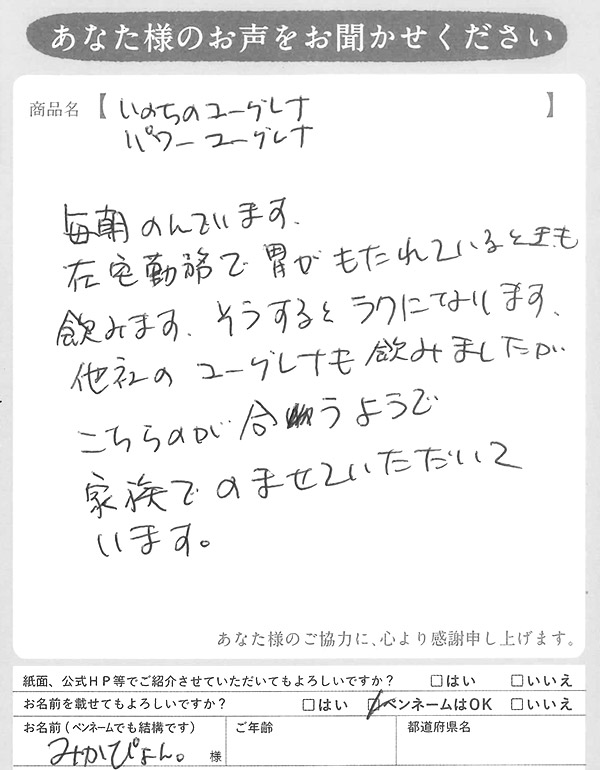 あなた様のお声をお聞かせください
商品名【いのちのユーグレナ】
パワーユーグレナ
毎朝のんでいます、
在宅勤務で胃がもたれているときも
飲みます、そうするとラクになります、
他社のユーグレナも飲みましたが
こちらのが合うようで
家族でのませていただいて
います。
あなた様のご協力に、心より感謝申し上げます。
紙面、公式HP等でご紹介させていただいてもよろしいですか？ □はい □いいえ
お名前を載せてもよろしいですか？ □はい ☑ペンネームはOK □いいえ
お名前（ペンネームでも結構です） ご年齢 都道府県名
みかぴょん。 様